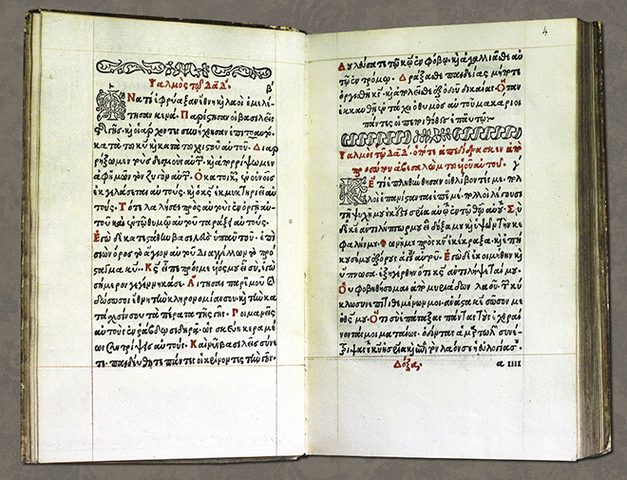 Ψαλμὸς τῷ Δαδ. β
Ἵνα τί ἐφρύαξαν ἔθνη κỳ λαοὶ ἐμελέ
τησαν κενά. Παρέστησαν οἱ βασιλεῖς
τῆς γῆς, κỳ οἱ ἄρχοντες συνήχθησαν ἐπιτοαυτὸ
κατὰ τοῦ κυ κỳ κατὰ τοῦ χυ αὐτοῦ. Διαρ
ρήξωμεν τοὺς δεσμοὺς αὐτῶν, κỳ ἀπορρίψωμεν
ἀφ' ἡμῶν τὸν ζυγὸν αὐτῶν. Ὁ κατοικῶν ἐν οὐνοῖς
ἐκγελάσεται αὐτοὺς, κỳ ὁ κς ἐκμυκτηριεῖ αὐ
τούς. Τότε λαλήσει πρὸς αὐτοὺς ἐν ὀργῇ αὐ
τοῦ καὶ ἐν τῷ θυμῷ αὐτοῦ ταράξει αὐτούς.
Ἐγὼ δὲ κατεστάθην βασιλεὺς ὑπ' αὐτοῦ. ἐπὶ
σιὼν ὄρος τὸ ἅγιον αὐτοῦ Διαγγέλλων τὸ πρό
σταγμα κυ. Κς εἶπε πρός με υἱός μου εἶ σύ, ἐγὼ
σήμερον γεγέννηκά σε. Αἴτησαι παρ' ἐμοῦ κỳ
δώσω σοι ἔθνη τὴν κληρονομίαν σου. κỳ τὴν κα
τάσχεσίν σου τὰ πέρατα τῆς γῆς. Ποιμανεῖς
αὐτοὺς ἐν ῥάβδῳ σιδηρᾷ. ὡς σκεύη κεραμέ
ως συντρίψεις αὐτούς. Καὶ νῦν βασιλεῖς σύνε
τε. παιδεύθητε πάντες οἱ κρίνοντες τὴν γῆν.
4
Δουλεύσατε τῷ κῳ ἐν φόβῳ κỳ ἀγαλλιᾶσθε αὐ
τῷ ἐν τρόμῳ. Δράξασθε παιδείας μήποτε
ὀργισθῇ κς κỳ ἀπολεῖσθε ἐξ ὁδοῦ δικαίας. Ὅταν
ἐκκαυθῇ ἐν τάχει ὁ θυμὸς αὐτοῦ μακάριοι
πάντες οἱ πεποιθότες ἐπ' αὐτῷ.
Ψαλμὸς τῷ Δαδ. ὁπότε ἀπεδίδρασκεν ἀπὸ
προσώπου ἀβεσσαλὼμ τοῦ υἱοῦ αὐτοῦ. γ
Κε τί ἐπληθύνθησαν οἱ θλίβοντές με. πολ
λοὶ ἐπανίστανται ἐπ' ἐμέ. πολλοὶ λέγουσι
τῇ ψυχῇ μου οὐκ ἔστι σωτηρία αὐτῷ ἐν τῷ θῷ αὐτοῦ. Σὺ
δὲ κε ἀντιλήπτωρ μου εἶ δόξα μου κỳ ὑψῶν τὴν κε
φαλήν μου. Φωνῇ μου πρὸς κν ἐκέκραξα. κỳ ἐπή
κουσέ μου ἐξ ὄρους ἁγίου αὐτοῦ. Ἐγὼ δὲ ἐκοιμήθην κỳ
ὕπνωσα. ἐξηγέρθην ὅτι κς ἀντιλήψεταί μου.
Οὐ φοβηθήσομαι ἀπὸ μυριάδων λαοῦ. τῶν κύ
κλῳ συνεπιτιθεμένων μοι. ἀνάστα κε σῶσόν με
ὁ θς μου. Ὅτι σὺ ἐπάταξας πάντας τοὺς ἐχθραί
νοντάς μοι ματαίως. ὀδόντας ἁμαρτωλῶν συνέ
τριψας. τοῦ κυ ἡ σωτηρία κỳ ἐπὶ τὸν λαόν σου ἡ εὐλογία σου.
Δόξα.
α ιιιι